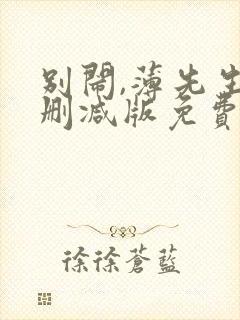 别闹,薄先生
删减版免费
徐徐苍蓝